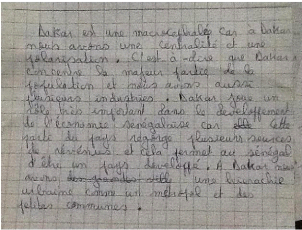 Dakar est une macrocéphalée car à Dakar
nous avons une centralité et une
polarisation. C'est-à-dire que Dakar
concentre la majeur partie de la
population et nous avons aussi
plusieurs industries. Dakar joue un
rôle très important dans le developpement
de l'économie sénégalaise car cette
partie du pays regorge plusieurs sources
de révénues et cela permet au sénégal
d'être un pays developpé. A Dakar nous
avons une hierarchie
urbaine comme un métropol et des
petites communes.